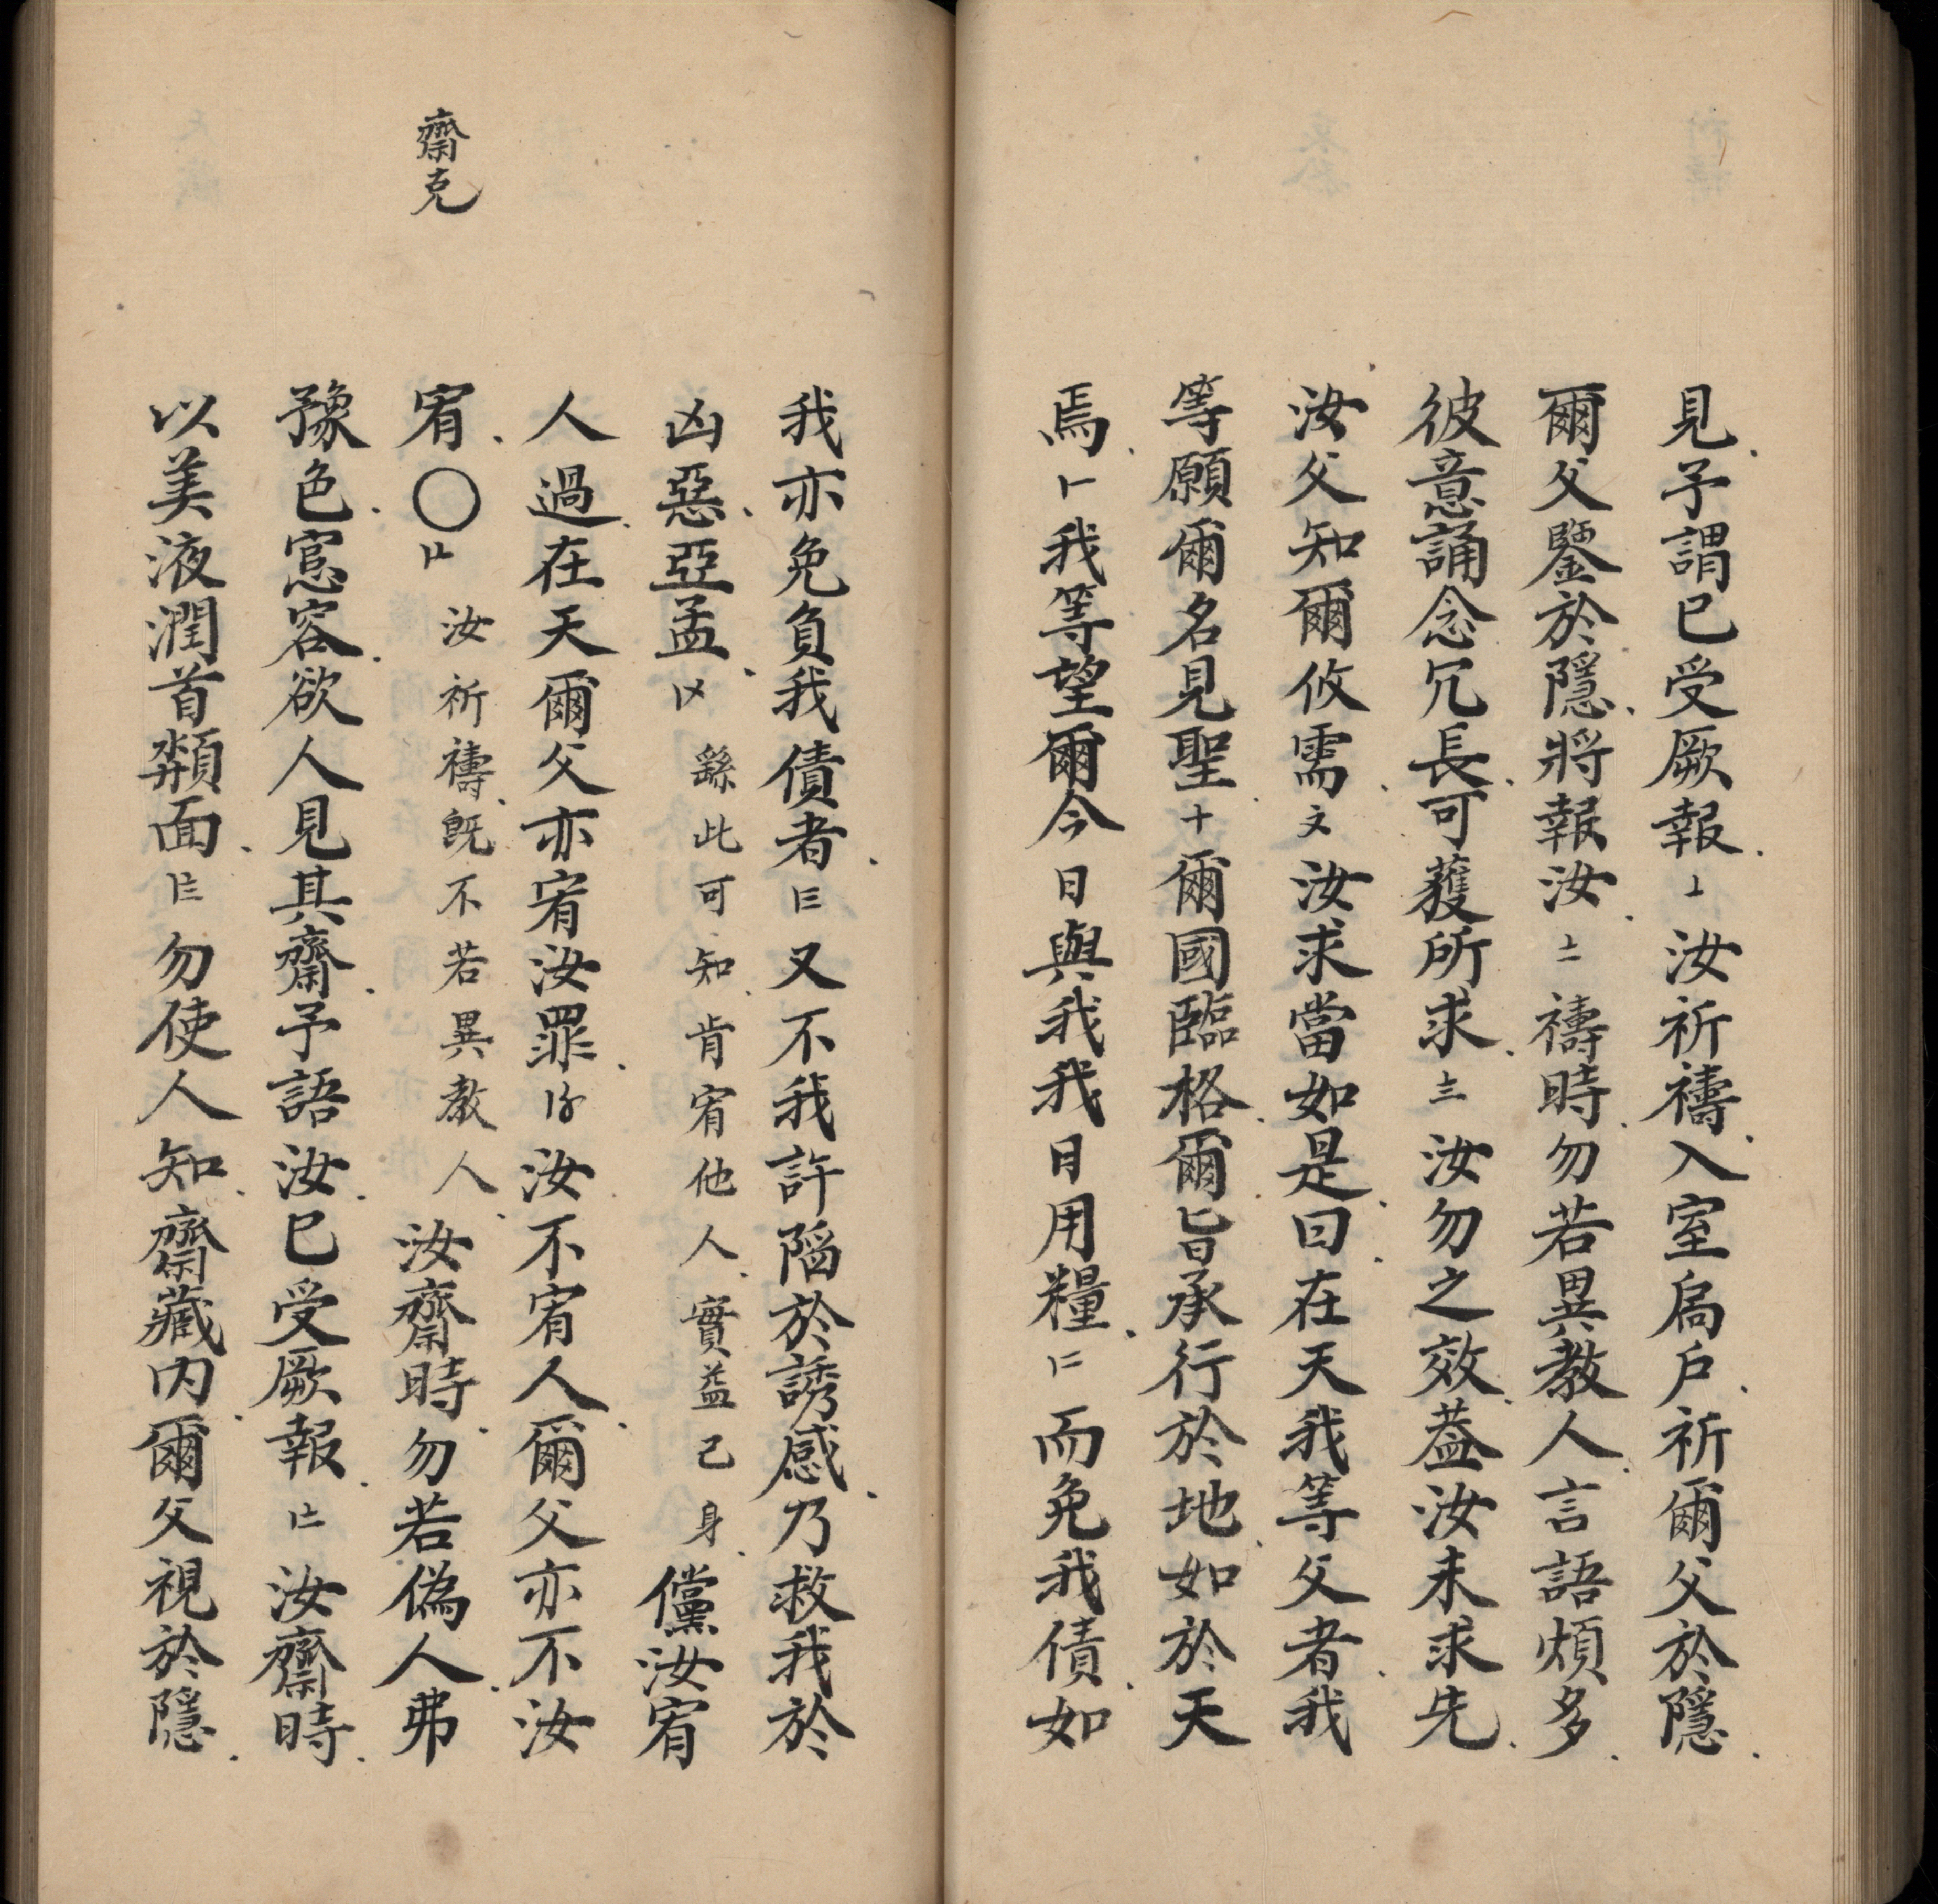 見予謂已受厥報〦汝祈禱入室扃户祈爾父於隱
爾父鑒於隱將報汝〧禱時勿若異教人言語煩多
彼意誦念冗長可蒦所求〨汝勿之效葢汝未求先
汝父知爾攸需文汝求當如是曰在天我等父者我
等願爾名見聖十爾國臨格爾旨承行於地如於天
焉我等望爾今日與我我日用糧而免我債如
我亦免負我債者又不我許陷於誘感乃救我於
凶惡亞孟繇此可知肯宥他人實益己身儻汝宥
人過在天爾父亦宥汝罪汝不宥人爾父亦不汝
宥〇汝祈禱既不若異教人汝齋時勿若偽人弗
齋克
豫色窓容欲人見其齋予語汝已受厥報汝齋時
以美液潤首頮面勿使人知齋藏内爾父視於隱